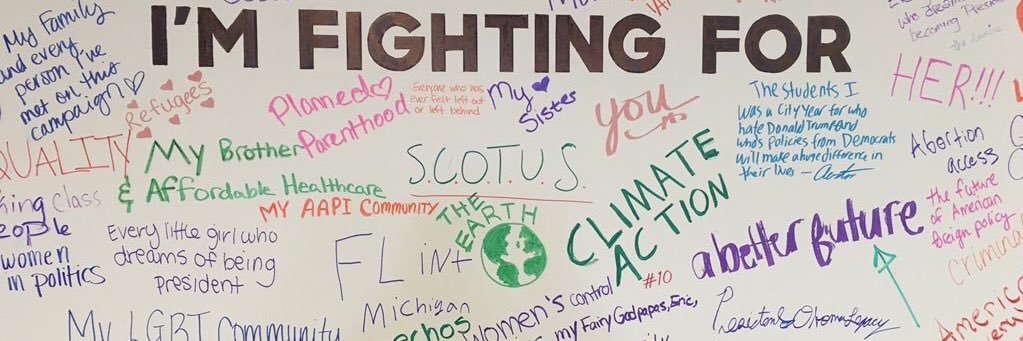 I'M FIGHTING FOR
My Family
and every
person I've
met on this
campaign
Refugees
Planned
Parenthood
Everyone who has
ever felt left out
or left behind
My
Sister
you
The students I
was a City Year for who
hate Donald Trump and
who's policies from Democrats
will make a huge difference in
their lives —
who dreams
becoming President
HER!!!
QUALITY
My Brother
& Affordable Healthcare
S.C.O.T.U.S.
CLIMATE
ACTION
Abortion
access
the future
of American
foreign policy
king class
women
in politics
MY AAPI Community
THE
EARTH
Every little girl who
dreams of being
President
FLint
Michigan
a better future
#10
women's control
my Fairy Godpapas, Eric,
My LGBT Community
echos
Obama Legacy